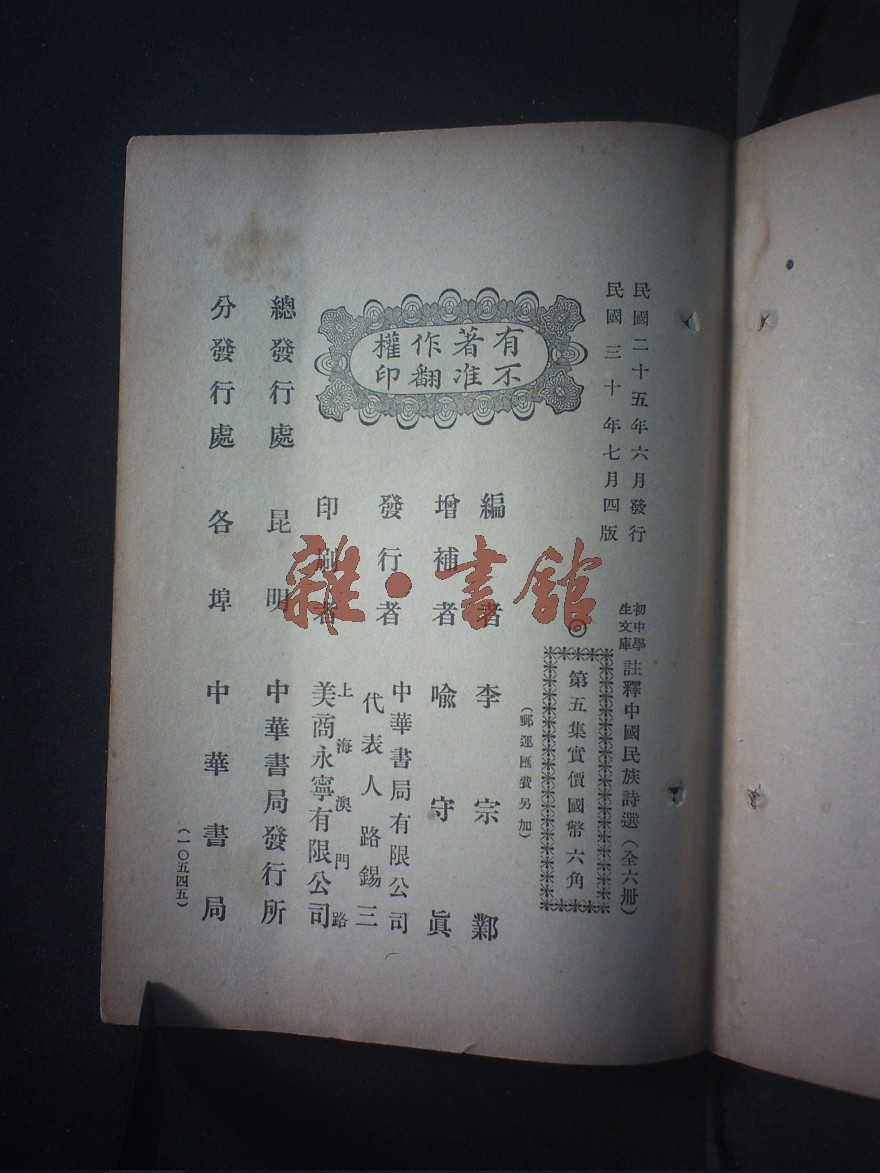 民國二十五年六月發行
民國三十年七月四版
初中學生文庫 註釋中國民族詩選（全六册）
◎第五集實價國幣六角
（郵運匯費另加）
有著作權
不准翻印
編者 李宗鄴
增補者 喩守眞
發行者 中華書局有限公司
代表人路錫三
印刷者 上海澳門路
美商永寧有限公司
總發行處 昆明 中華書局發行所
分發行處 各埠 中華書局
（一〇五四五）
雜·書館